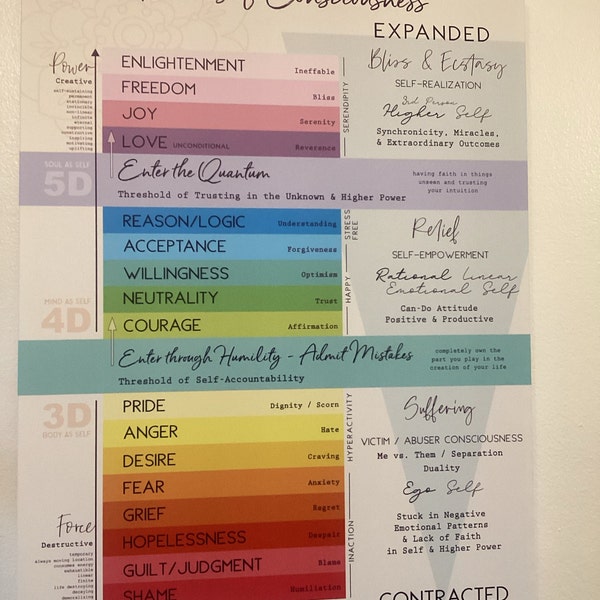 of Consciousness
EXPANDED
Power
Creative
self-sustaining
permanent
stationary
invincible
non-linear
infinite
eternal
supporting
constructive
inspiring
motivating
uplifting
ENLIGHTENMENT Ineffable
FREEDOM Bliss
JOY Serenity
LOVE UNCONDITIONAL Reverence
SERENDIPITY
Bliss & Ecstasy
SELF-REALIZATION
3rd Person
Higher Self
Synchronicity, Miracles,
& Extraordinary Outcomes
SOUL AS SELF
5D
Enter the Quantum
Threshold of Trusting in the Unknown & Higher Power
having faith in things
unseen and trusting
your intuition
REASON/LOGIC Understanding
ACCEPTANCE Forgiveness
WILLINGNESS Optimism
NEUTRALITY Trust
COURAGE Affirmation
STRESS
FREE
HAPPY
Relief
SELF-EMPOWERMENT
Rational Linear
Emotional Self
Can-Do Attitude
Positive & Productive
MIND AS SELF
4D
Enter through Humility - Admit Mistakes
Threshold of Self-Accountability
completely own the
part you play in the
creation of your life
3D
BODY AS SELF
PRIDE Dignity / Scorn
ANGER Hate
DESIRE Craving
FEAR Anxiety
GRIEF Regret
HOPELESSNESS Despair
GUILT/JUDGMENT Blame
SHAME Humiliation
HYPERACTIVITY
INACTION
Suffering
VICTIM / ABUSER CONSCIOUSNESS
Me vs. Them / Separation
Duality
Ego Self
Stuck in Negative
Emotional Patterns
& Lack of Faith
in Self & Higher Power
Force
Destructive
temporary
always moving location
consumes energy
exhaustible
linear
finite
life destroying
decaying
demoralizing
CONTRACTED